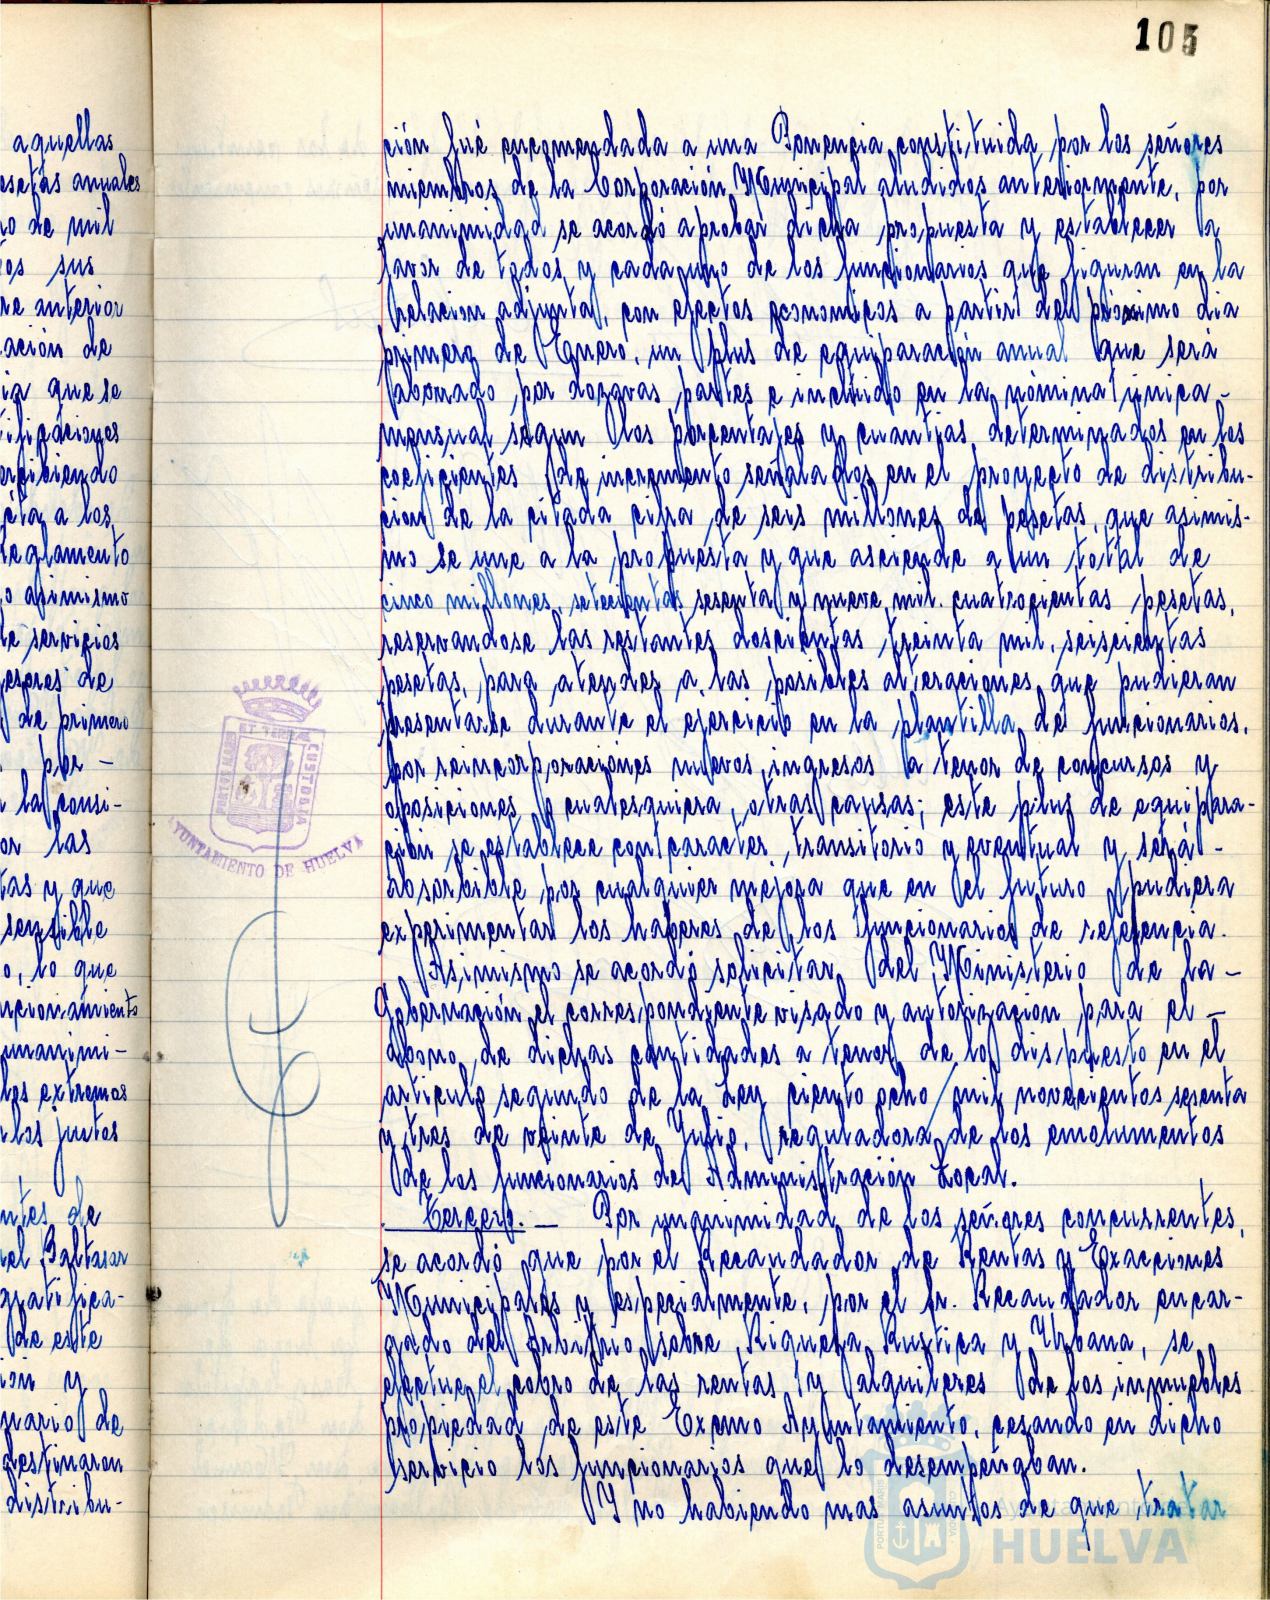 105
aquellas
esetas anuales
o de mil
os sus
re anterior
ación de
ia que se
ificaciones
ercibiendo
cta a los
Reglamento
o asimismo
de servicios
esores de
de primero
por -
la consi-
or las
tas y que
sensible
o, lo que
ncionamiento
unanimi-
los extremos
los justos
ntes de
el Baltasar
gratifica-
de este
ion y
nario de
destinaron
distribu-
ción fué encomendada a una Ponencia constituida por los señores
miembros de la Corporación Municipal aludidos anteriormente, por
unanimidad se acordó aprobar dicha propuesta y establecer a
favor de todos y cada uno de los funcionarios que figuran en la
relacion adjunta, con efectos economicos a partir del próximo dia
primero de Enero, un plus de equiparación anual que será
abonado por dozavas partes e incluido en la nómina unica -
mensual segun los porcentajes y cuantias determinados en los
coeficientes de incremento señalados en el proyecto de distribu-
cion de la citada cifra de seis millones de pesetas, que asimis-
mo se une a la propuesta y que asciende a un total de
cinco millones, setecientas sesenta y nueve mil cuatrocientas pesetas,
reservandose las restantes doscientas treinta mil, seiscientas
pesetas, para atender a las posibles alteraciones que pudieran
presentarse durante el ejercicio en la plantilla de funcionarios,
por reincorporaciones nuevos ingresos a tenor de concursos y
oposiciones o cualesquiera otras causas; este plus de equipara-
ción se establece con caracter transitorio y eventual y será -
absorbible por cualquier mejora que en el futuro pudiera
experimentar los haberes de los funcionarios de referencia.
Asimismo se acordó solicitar del Ministerio de la -
Gobernación el correspondiente visado y autorizacion para el -
abono de dichas cantidades a tenor de lo dispuesto en el
articulo segundo de la Ley ciento ocho / mil novecientos sesenta
y tres de veinte de Julio, reguladora de los emolumentos
de los funcionarios de Administración Local.
Tercero. - Por unanimidad de los señores concurrentes,
se acordó que por el Recaudador de Rentas y Exacciones
Municipales y especialmente, por el Sr. Recaudador encar-
gado del Arbitrio sobre Riqueza Rustica y Urbana, se
efectue el cobro de las rentas y alquileres de los inmuebles
propiedad de este Excmo Ayuntamiento, cesando en dicho
servicio los funcionarios que lo desempeñaban.
Y no habiendo mas asuntos de que tratar
PORTUS MARIS ET TERRAE CUSTODIA
AYUNTAMIENTO DE HUELVA
HUELVA